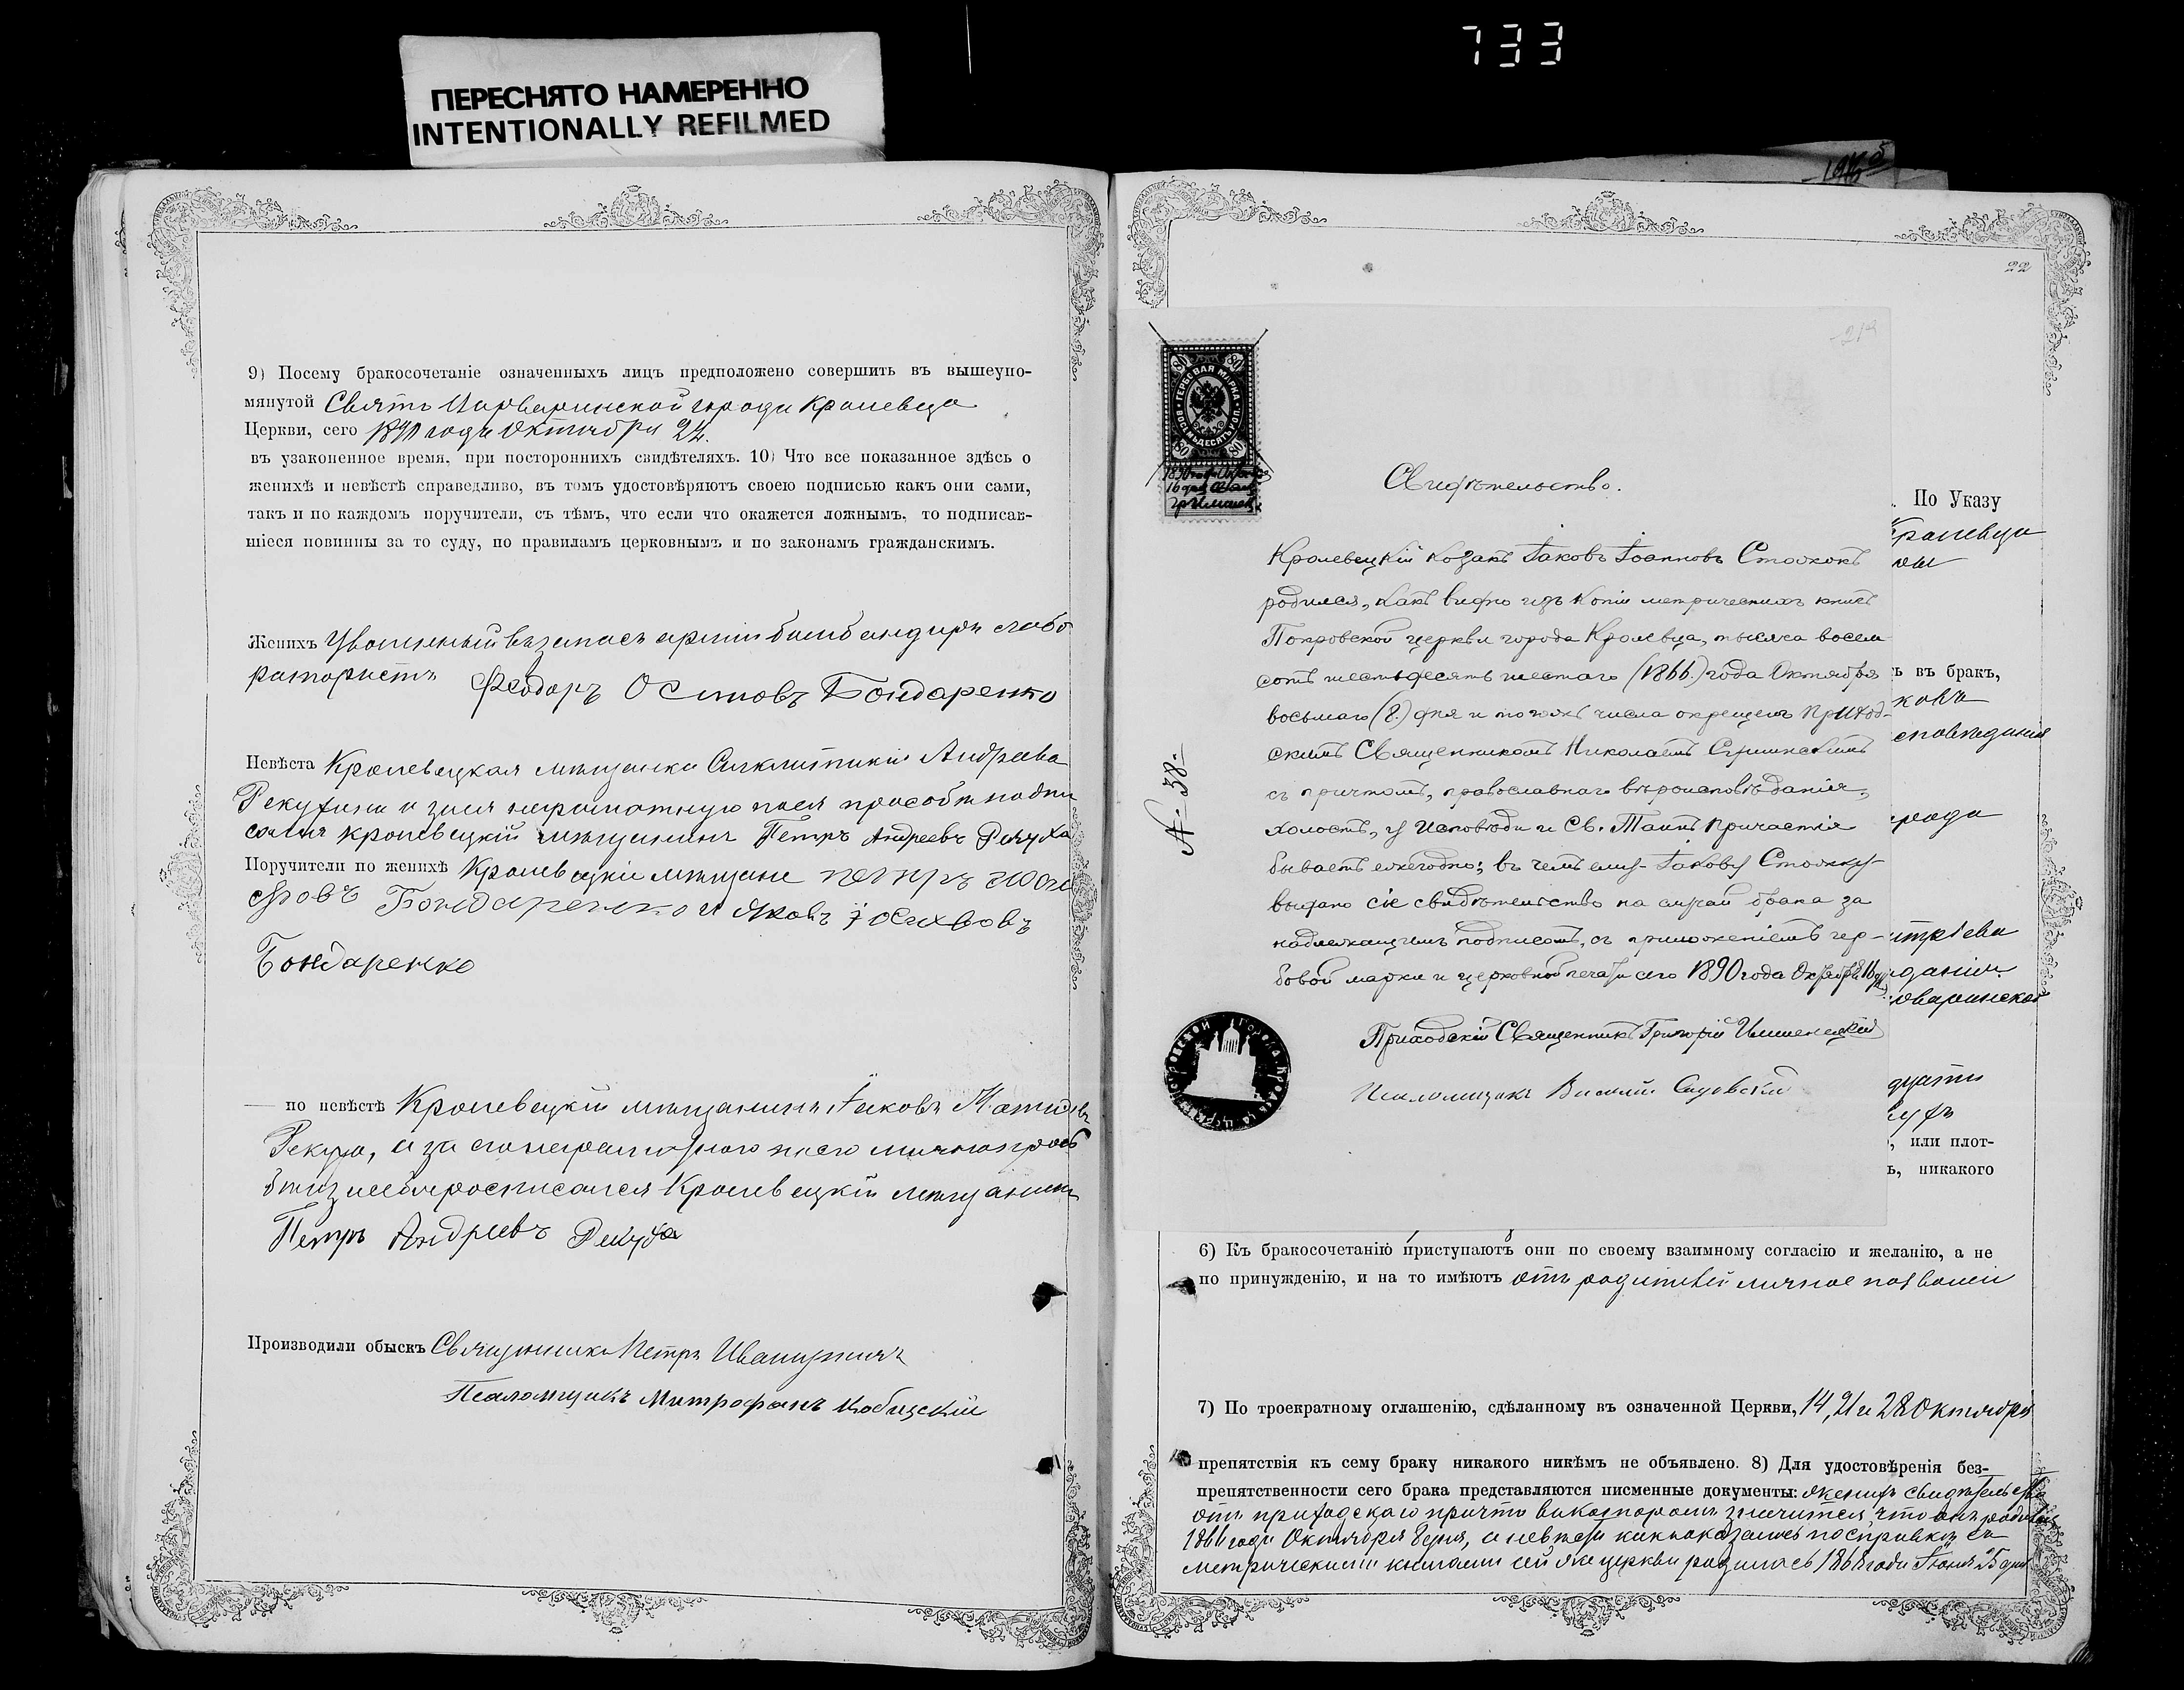 733
ПЕРЕСНЯТО НАМЕРЕННО
INTENTIONALLY REFILMED
9) Посему бракосочетаніе означенныхъ лицъ предположено совершить въ вышеупо-
мянутой Свято Варваринской города Кролевца
Церкви, сего 1890 года Октября 24.
въ узаконенное время, при постороннихъ свидѣтеляхъ. 10) Что все показанное здѣсь о
женихѣ и невѣстѣ справедливо, въ томъ удостовѣряютъ своею подписью какъ они сами,
такъ и по каждомъ поручители, съ тѣмъ, что если что окажется ложнымъ, то подписав-
шіеся повинны за то суду, по правиламъ церковнымъ и по законамъ гражданскимъ.
Женихъ Уволенный въ запасъ арміи бомбандиръ лабо
ратористъ Феодоръ Осиповъ Бондаренко
Невѣста Кролевецкая мѣщанка Андреева
Рекуха а за неграмотную
кролевецкій мѣщанинъ Петръ Андреевъ Рекуха
Поручители по женихѣ Кролевецкіе мѣщане Петръ Іоси
фовъ Бондаренко и Яковъ Іосифовъ
Бондаренко
— по невѣстѣ Кролевецкій мѣщанинъ Іаковъ
Рекуха, а за него
росписался Кролевецкій мѣщанинъ
Петръ Андреевъ Рекуха
Производили обыскъ Священникъ Петръ
Псаломщикъ Митрофанъ
22
80 80
ГЕРБОВАЯ МАРКА ВОСЕМЬДЕСЯТЪ КОП.
80 80
1890 года Октября
16 дня
Свидѣтельство.
Кролевецкій козакъ Іаковъ Іоанновъ Стожокъ
родился, какъ видно изъ копіи метрическихъ книгъ
Покровской церкви города Кролевца, тысяча восем
сотъ шестьдесятъ шестаго (1866.) года Октября
восьмаго (8.) дня и того же числа окрещенъ приход-
скимъ Священникомъ Николаемъ
съ причтомъ, православнаго вѣроисповѣданія,
холостъ, у Исповѣди и Св. Таинъ Причастія
бываетъ ежегодно; въ чемъ ему Іакову Стожку
выдано сіе свидѣтельство на случай брака за
надлежащимъ подписомъ, съ приложеніемъ гер-
бовой марки и церковной печати сего 1890 года Октября 16 дня
Приходскій Священникъ Григорій
Псаломщикъ
№ 38
По Указу
Кролевца
ь въ брак,
кова
еповѣданія
города
итріева
даніи
рваринской
дцати
, или плот-
ь, никакого
6) Къ бракосочетанію приступаютъ они по своему взаимному согласію и желанію, а не
по принужденію, и на то имѣютъ отъ родителей личное позволеніе
7) По троекратному оглашенію, сдѣланному въ означенной Церкви, 14, 21 и 28 Октября
препятствія къ сему браку никакого никѣмъ не объявлено. 8) Для удостовѣренія без-
препятственности сего брака представляются писменные документы: женихъ свидѣтельство
отъ приходскаго причта въ которомъ значится, что онъ родился
1866 года Октября 8 дня, а невѣста какъ оказалось по справкѣ съ
метрическими книгами сей же церкви родилась 1868 года Іюня 25 дня